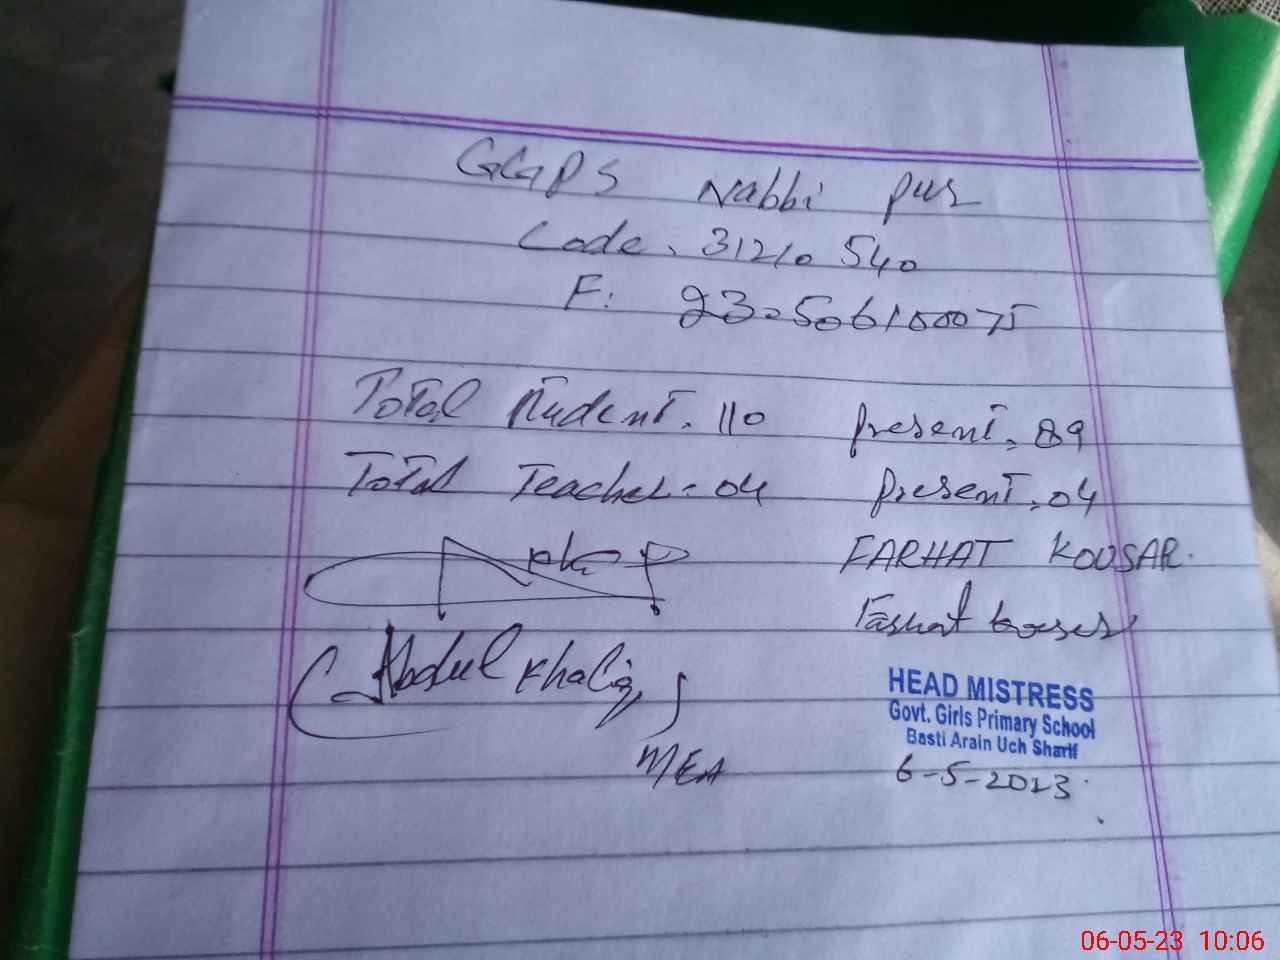 GGPS Nabbi pur
Code. 31210540
F: 23-506100075
Total Student. 110 present. 89
Total Teacher = 04 present. 04
FARHAT KOUSAR.
Farhat kouser
(Abdul Khaliq)
MEA
HEAD MISTRESS
Govt. Girls Primary School
Basti Arain Uch Sharif
6-5-2023
06-05-23 10:06